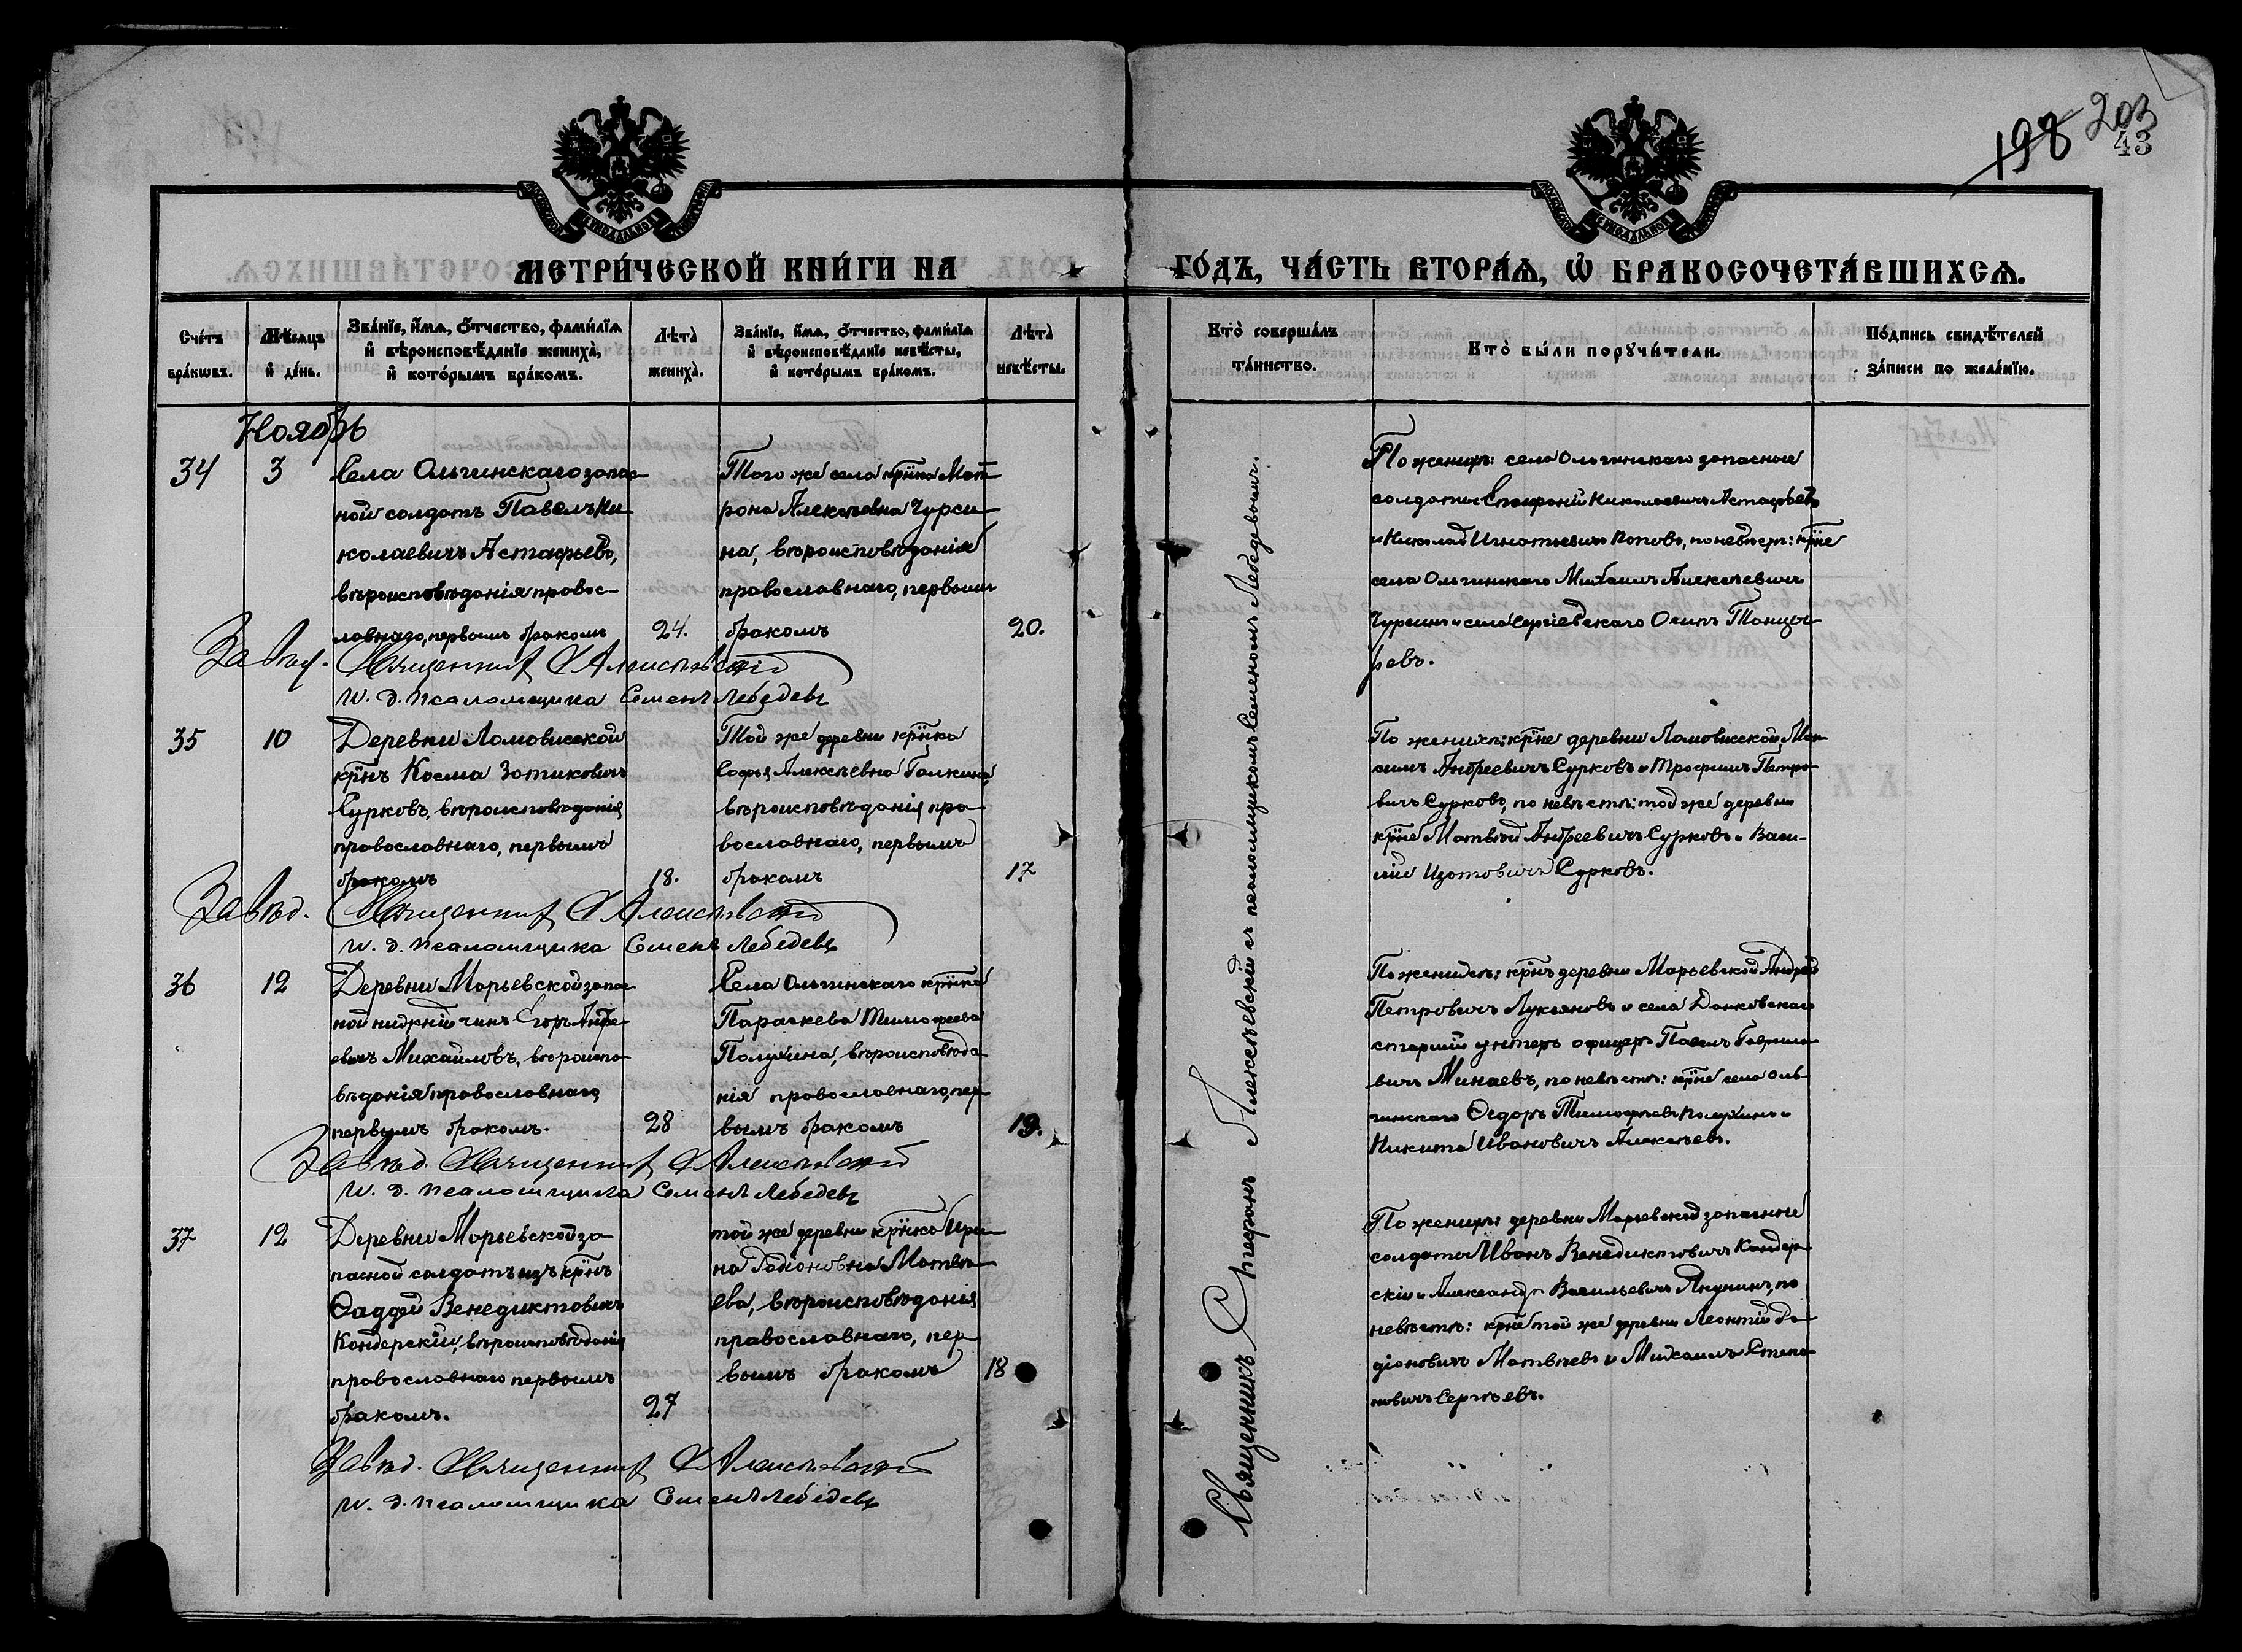 198 203
43
МЕТРИ́ЧЕСКОЙ КНИ́ГИ НА
ГО́ДЪ, ЧА́СТЬ ВТОРА́Ѧ, Ѽ БРАКОСОЧЕТА́ВШИХСѦ.
Сче́тъ бра́кѡвъ.
Мѣ́сѧцъ и҆ де́нь.
Зва́нїе, и҆́мѧ, ѻ҆́тчество, фами́лїѧ и҆ вѣроисповѣ́данїе жениха̀, и҆ кото́рымъ бра́комъ.
Лѣта̀ жениха̀.
Зва́нїе, и҆́мѧ, ѻ҆́тчество, фами́лїѧ и҆ вѣроисповѣ́данїе невѣ́сты, и҆ кото́рымъ бра́комъ.
Лѣта̀ невѣ́сты.
Кто̀ соверша́лъ та́инство.
Кто̀ бы́ли порꙋчи́тели.
По́дпись свидѣ́телей за́писи по жела́нїю.
Ноябрь
34
3
Села Ольгинскаго запас-
ной солдатъ Павелъ Ни-
колаевичъ Астафьевъ,
вѣроисповѣданія правос-
лавнаго, первымъ бракомъ
24.
Того же села кр̅нка Мат-
рона Алексѣевна Чурси-
на, вѣроисповѣданія
православнаго, первымъ
бракомъ
20.
По женихѣ: села Ольгинскаго запасные
солдаты Николаевичъ Астафьевъ
и Николай Игнатьевичъ Поповъ, по невѣстѣ: кр̅не
села Ольгинскаго Михаилъ Алексѣевичъ
Чурсинъ и села Сергіевскаго Осипъ
ревъ.
Завѣд. Священникъ С Алексѣевскій
И. д. псаломщика Семенъ Лебедевъ
35
10
Деревни Ломовисской
кр̅нъ Косма Зотиковичъ
Сурковъ, вѣроисповѣданія
православнаго, первымъ
бракомъ
18.
Той же деревни кр̅нка
Софья Алексѣевна Галкина,
вѣроисповѣданія пра-
вославнаго, первымъ
бракомъ
17
По женихѣ: кр̅не деревни Ломовисской Мак-
симъ Андреевичъ Сурковъ и Трофимъ Петро-
вичъ Сурковъ, по невѣстѣ: той же деревни
кр̅не Матвѣй Андреевичъ Сурковъ и Васи-
лій Изотовичъ Сурковъ.
Завѣд. Священникъ С Алексѣевскій
И. д. псаломщика Семенъ Лебедевъ
36
12
Деревни Марьевской запас-
ной нижній чинъ Егоръ Андре-
евичъ Михайловъ, вѣроиспо-
вѣданія православнаго,
первымъ бракомъ.
28
Села Ольгинскаго кр̅нка
Параскева Тимофеева
Полухина, вѣроисповѣда-
нія православнаго, пер-
вымъ бракомъ
19.
По женихѣ: кр̅нъ деревни Марьевской Андрей
Петровичъ Лукьяновъ и села Донковскаго
старшій унтеръ офицеръ Павелъ Гаврило-
вичъ Минаевъ, по невѣстѣ: кр̅не села Оль-
гинскаго Ѳедоръ Тимофѣевъ Полухинъ и
Никита Ивановичъ Алексѣевъ.
Завѣд. Священникъ С Алексѣевскій
И. д. псаломщика Семенъ Лебедевъ
37
12
Деревни Марьевской за-
пасной солдатъ изъ кр̅нъ
Ѳаддей Венедиктовичъ
Кондерскій, вѣроисповѣданія
православнаго первымъ
бракомъ.
27
той же деревни кр̅нка Ири-
на Родіоновна Матвѣ-
ева, вѣроисповѣданія
православнаго, пер-
вымъ бракомъ
18
По женихѣ: деревни Марьевской запасные
солдаты Иванъ Венедиктовичъ Кондер-
скій и Александръ Васильевичъ Якунинъ, по
невѣстѣ: кр̅не той же деревни Леонтій Ро-
діоновичъ Матвѣевъ и Михаилъ Степа-
новичъ Сергѣевъ.
Завѣд. Священникъ С Алексѣевскій
И. д. псаломщика Семенъ Лебедевъ
Священникъ Стефанъ Алексѣевскій съ псаломщикомъ Семеномъ Лебедевымъ.